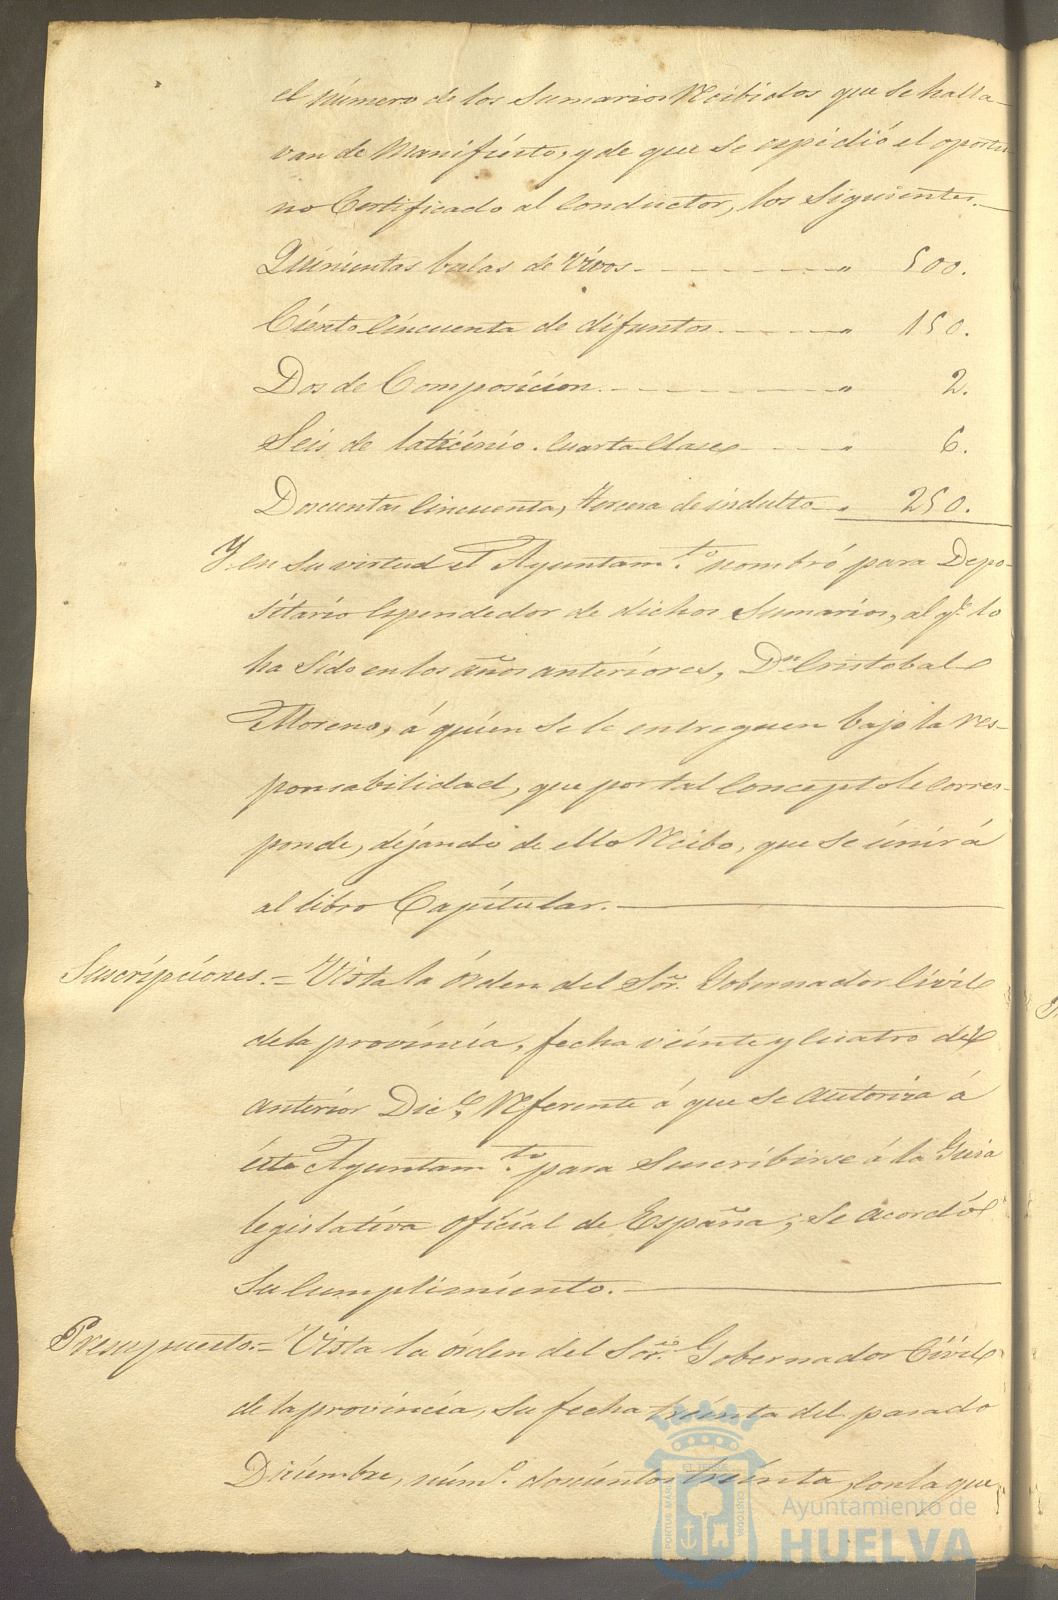 el número de los Sumarios Recibidos que se halla-
van de Manifiesto, y de que se espidió el oportu-
no Certificado al Conductor, los Siguientes.—
Quinientas bulas de Vivos - - - - - " 500.
Ciento Cincuenta de difuntos. - - - - " 150.
Dos de Composicion. - - - - - " 2.
Seis de laticinio. Cuarta Clase - - - " 6.
Doscientas Cincuenta, tercera de indulto - " 250.
Y en su virtud el Ayuntam.to nombró para Depo-
sitario Espendedor de dichos Sumarios, al q.e lo
ha Sido en los años anteriores, D.n Cristobal
Moreno, á quien se le entreguen bajo la res-
ponsabilidad, que por tal Concepto le Corres-
ponde, dejando de ello Recibo, que se unirá
al libro Capitular.—
Suscripciones.= Vista la órden del Sor. Gobernador Civil
de la provincia, fecha veinte y Cuatro del
anterior Dic.e, Referente á que se autoriza á
éste Ayuntam.to para Suscribirse á la Guia
legislativa oficial de España; se acordó
su Cumplimiento.—
Presupuesto.= Vista la órden del Sor. Gobernador Civil
de la provincia, su fecha treinta del pasado
Diciembre, núm.o doscientos treinta, con la que
PORTUS MARIS
ET TERRÆ
CUSTODIA
Ayuntamiento de
HUELVA